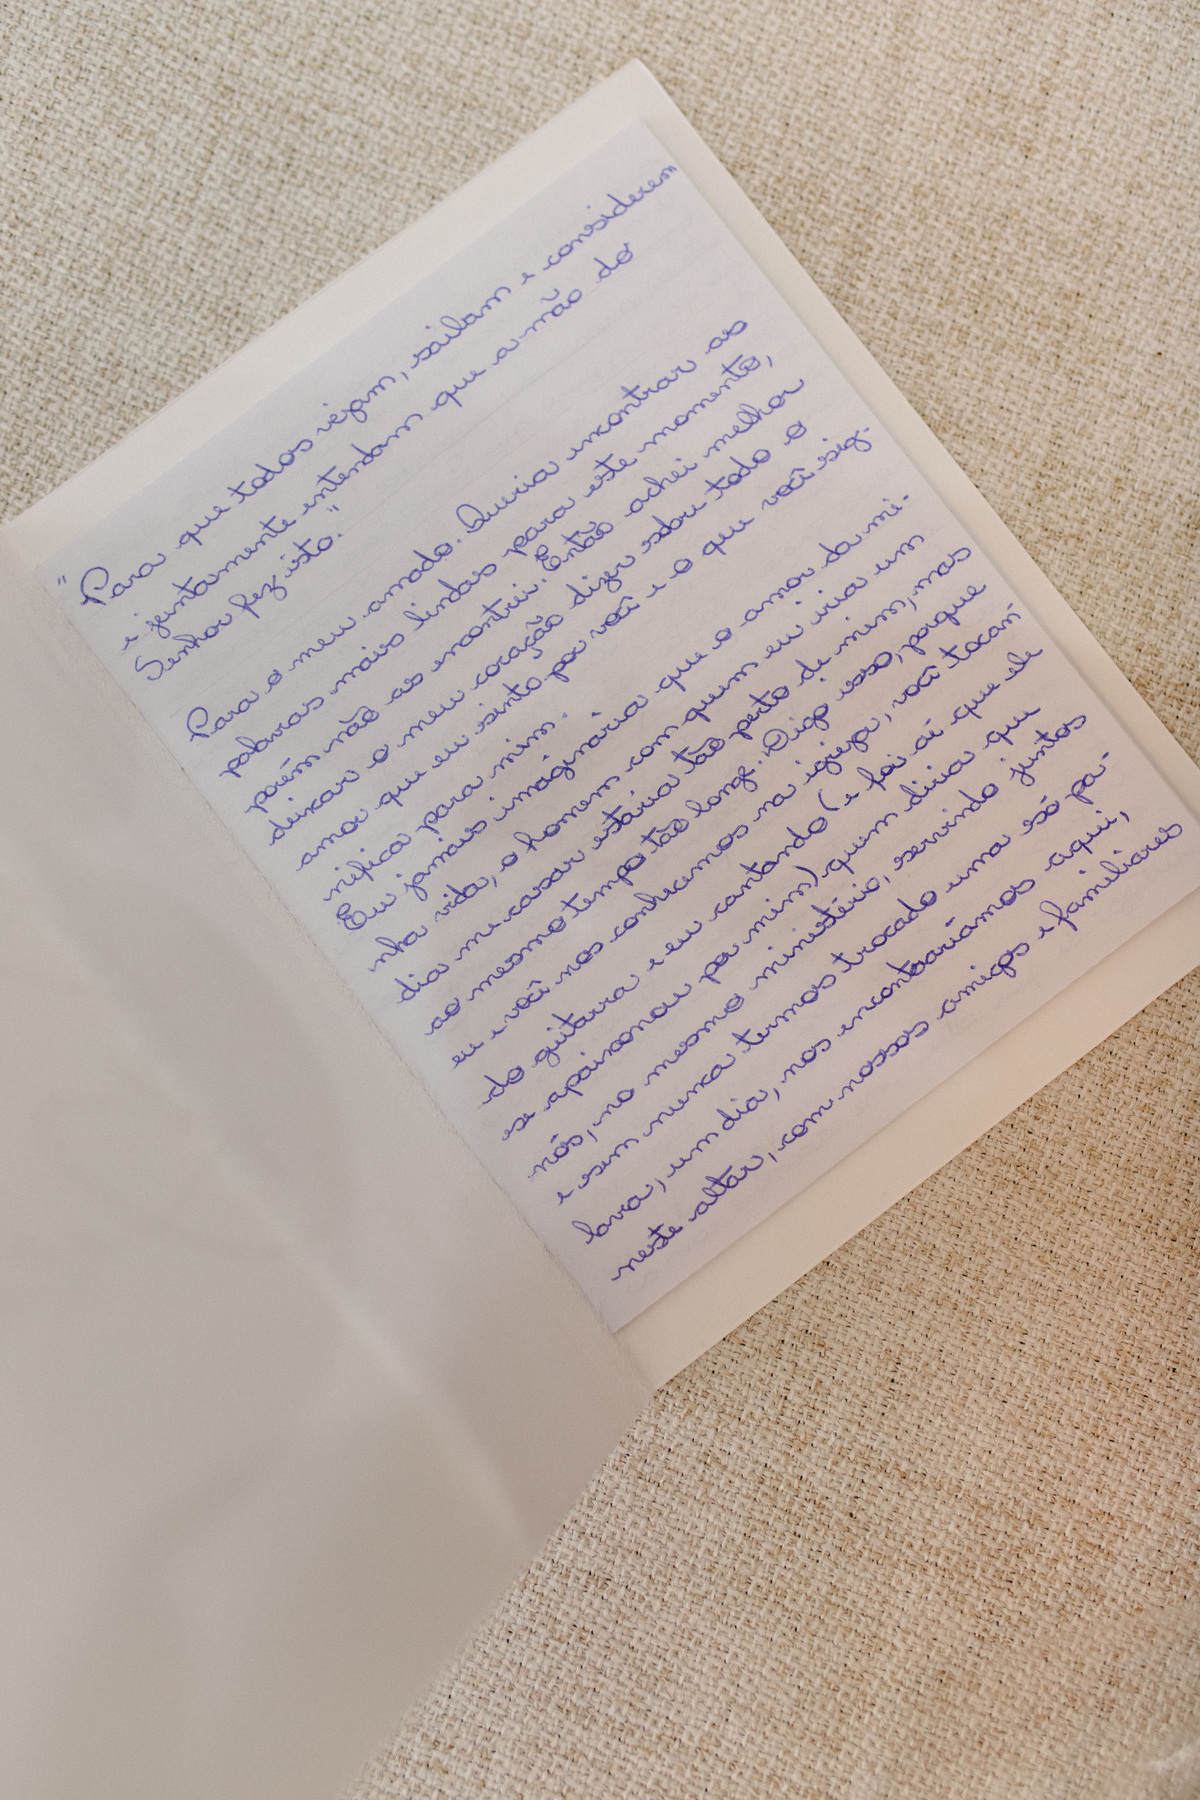 "Para que todos vejam, saibam e considerem
e juntamente entendam que a mão do
Senhor fez isto."
Para o meu amado. Queria encontrar as
palavras mais lindas para este momento,
porém não as encontrei. Então achei melhor
deixar o meu coração dizer sobre todo o
amor que eu sinto por você e o que você sig-
nifica para mim.
Eu jamais imaginaria que o amor da mi-
nha vida, o homem com quem eu iria um
dia me casar estaria tão perto de mim, mas
ao mesmo tempo tão longe. Digo isso, porque
eu e você nos conhecemos na igreja, você tocan-
do guitarra e eu cantando (e foi aí que ele
se apaixonou por mim) quem diria que
nós, no mesmo ministério, servindo juntos
e sem nunca termos trocado uma só pa-
lavra, um dia, nos encontraríamos aqui,
neste altar, com nossos amigos e familiares